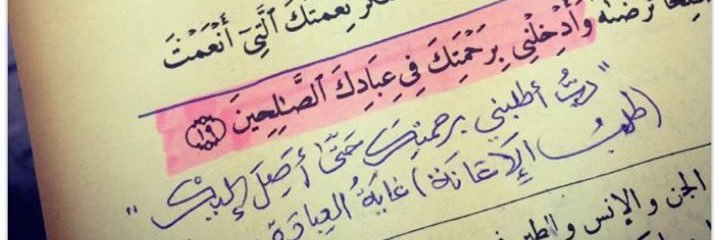 نِعْمَتَكَ ٱلَّتِىٓ أَنْعَمْتَ
تَرْضَىٰهُ وَأَدْخِلْنِى بِرَحْمَتِكَ فِى عِبَادِكَ ٱلصَّٰلِحِينَ ١٩
"ربُّ أطلبني برحمتك حَتَّى أَصِلَ إليك"
(طلبُ الإعانة) غايَةُ العِبادة
الجن والإنس والطير